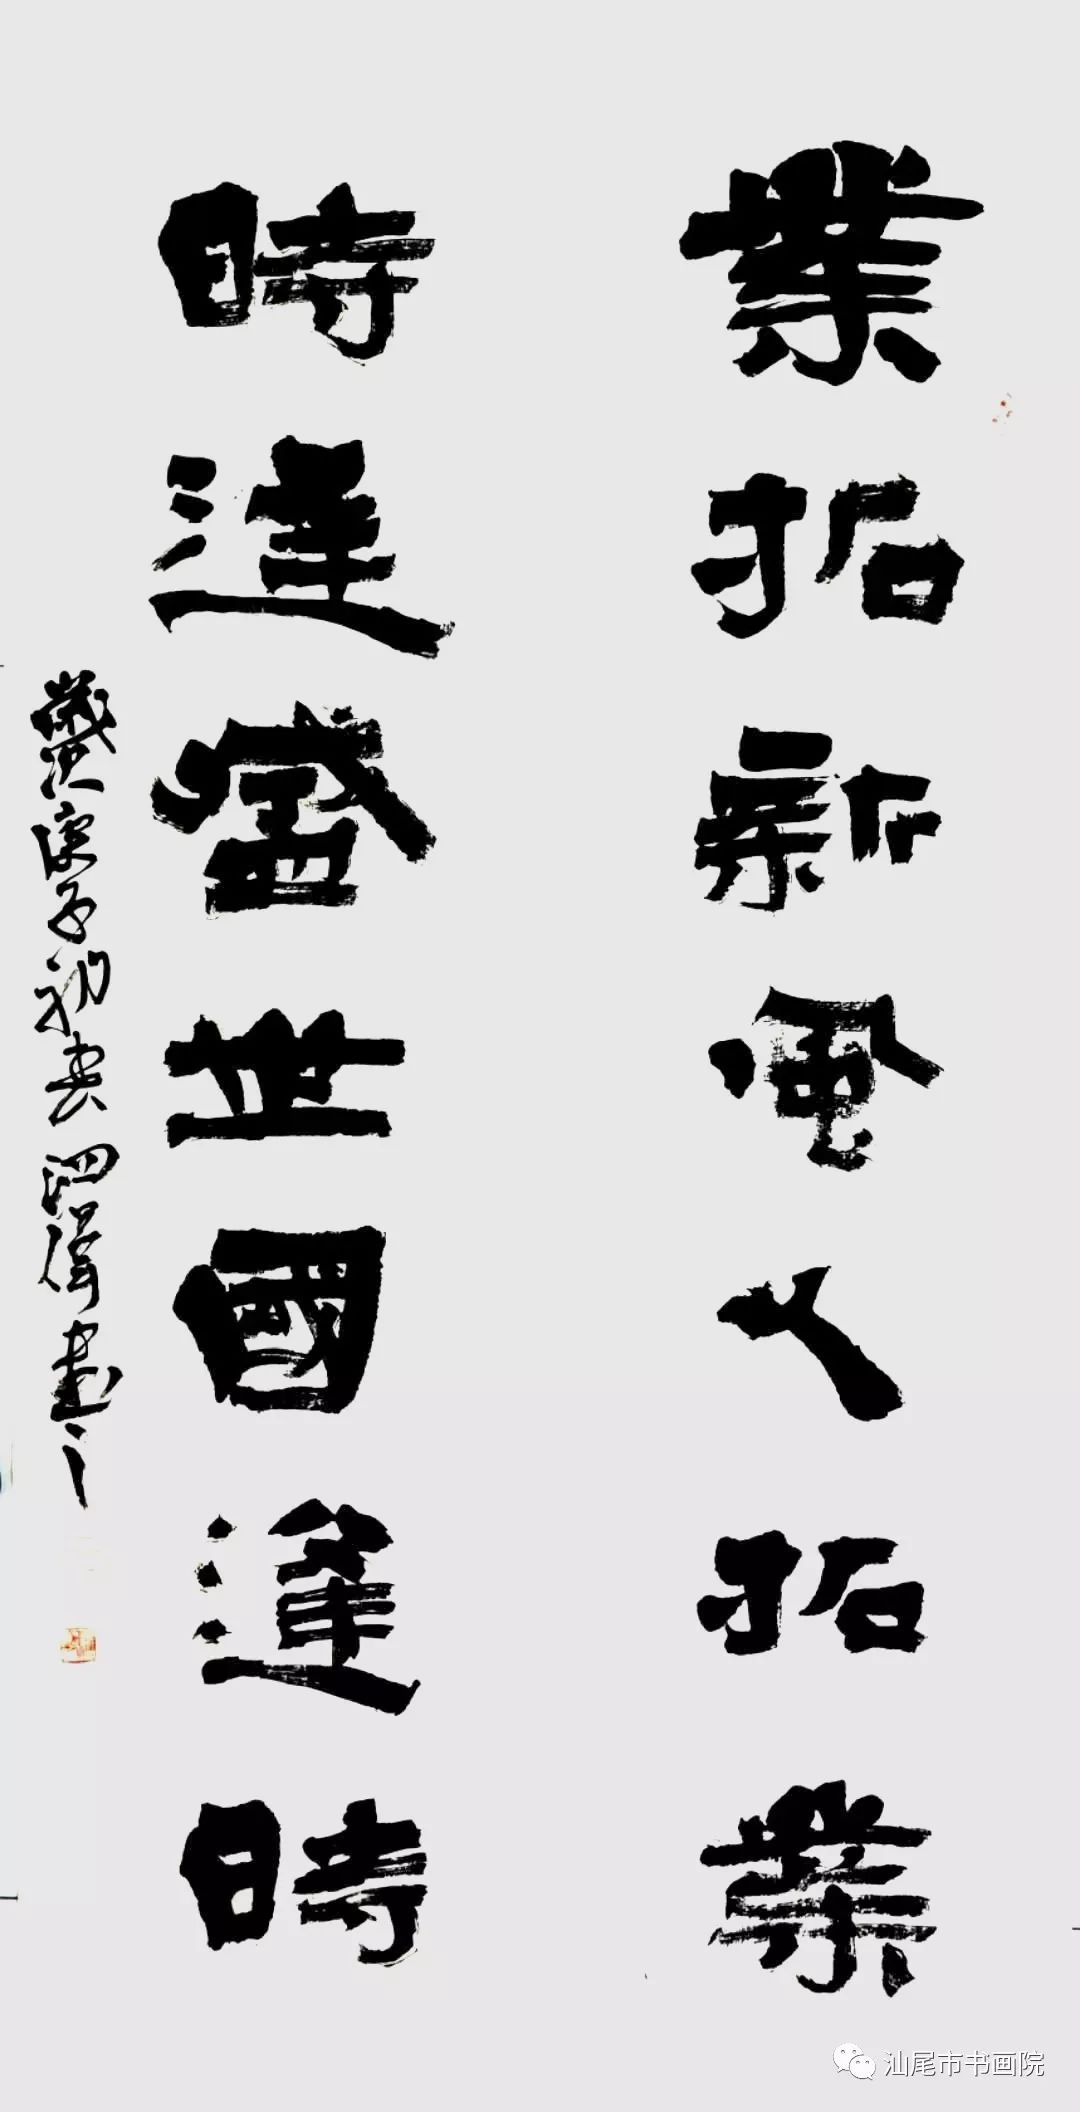 業拓新風人拓業
時逢盛世國逢時
歲次庚子初春泗偉書之
汕尾市书画院